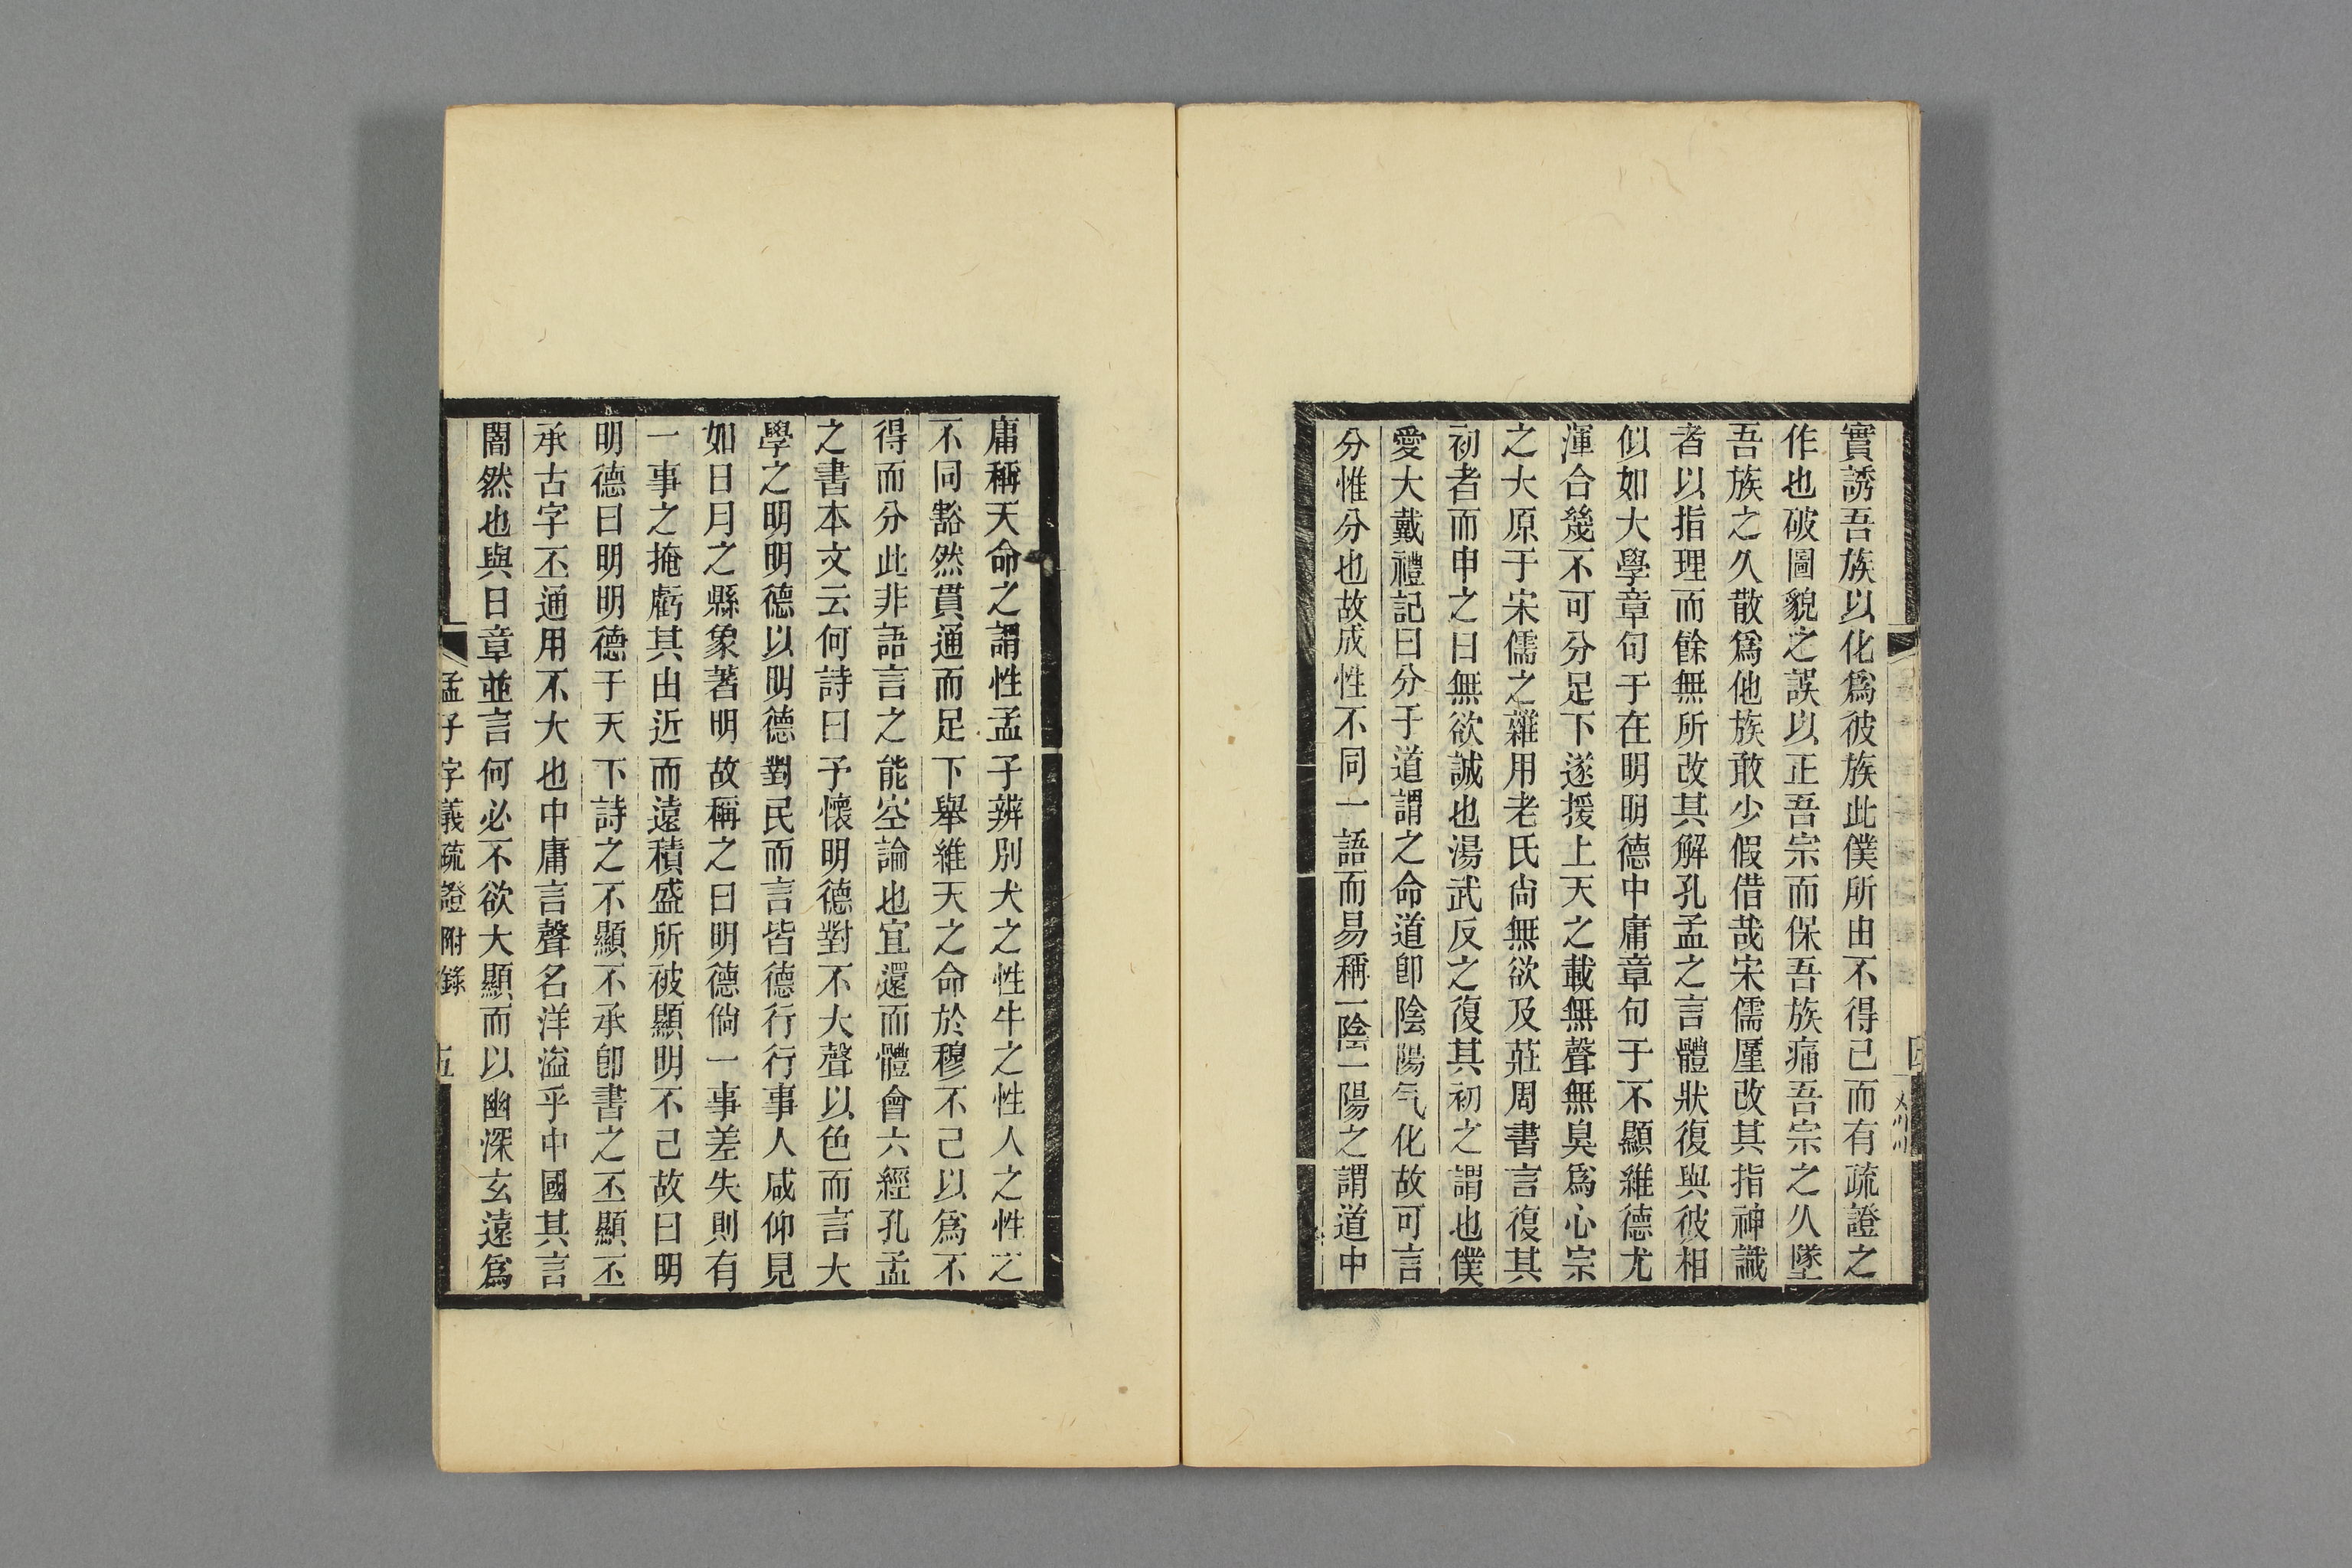 實誘吾族以化爲彼族此僕所由不得已而有疏證之
作也破圖貌之誤以正吾宗而保吾族痛吾宗之久墜
吾族之久散爲他族敢少假借哉宋儒厪改其指神識
者以指理而餘無所改其解孔孟之言體狀復與彼相
似如大學章句于在明明德中庸章句于不顯維德尤
渾合幾不可分足下遂援上天之載無聲無臭爲心宗
之大原于宋儒之雜用老氏尙無欲及莊周書言復其
初者而申之曰無欲誠也湯武反之復其初之謂也僕
愛大戴禮記曰分于道謂之命道卽陰陽气化故可言
分惟分也故成性不同一語而易稱一陰一陽之謂道中
庸稱天命之謂性孟子辨別犬之性牛之性人之性之
不同豁然貫通而足下舉維天之命於穆不已以爲不
得而分此非語言之能空論也宜還而體會六經孔孟
之書本文云何詩曰予懷明德對不大聲以色而言大
學之明明德以明德對民而言皆德行行事人咸仰見
如日月之縣象著明故稱之曰明德倘一事差失則有
一事之掩虧其由近而遠積盛所被顯明不已故曰明
明德曰明明德于天下詩之不顯不承卽書之丕顯丕
承古字丕通用不大也中庸言聲名洋溢乎中國其言
闇然也與日章並言何必不欲大顯而以幽深玄遠爲
孟子字義疏證附錄 五